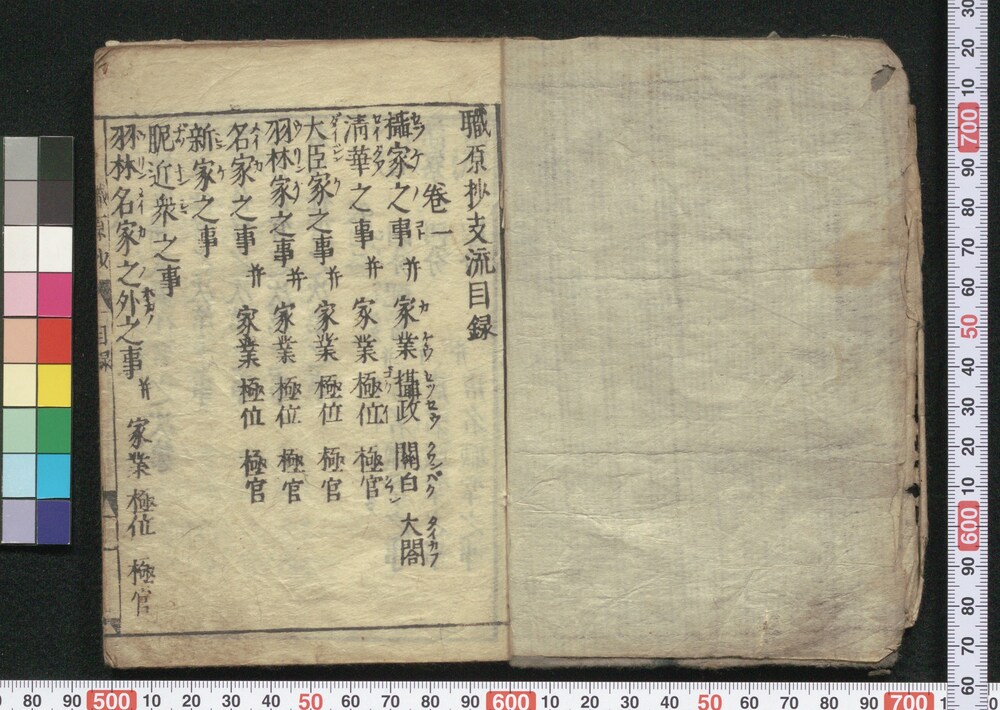 職原抄支流目録
卷一
攝家之事 并 家業 攝政 関白 大閤
清華之事 并 家業 極位 極官
大臣家之事 并 家業 極位 極官
羽林家之事 并 家業 極位 極官
名家之事 并 家業 極位 極官
新家之事
昵近衆之事
羽林名家之外之事 并 家業 極位 極官
目録
80 90 500 10 20 30 40 50 60 70 80 90 600 10 20 30 40 50 60 70 80 90 700
30 20 10 700 90 80 70 60 50 40 30 20 10 600 90 80 70 60